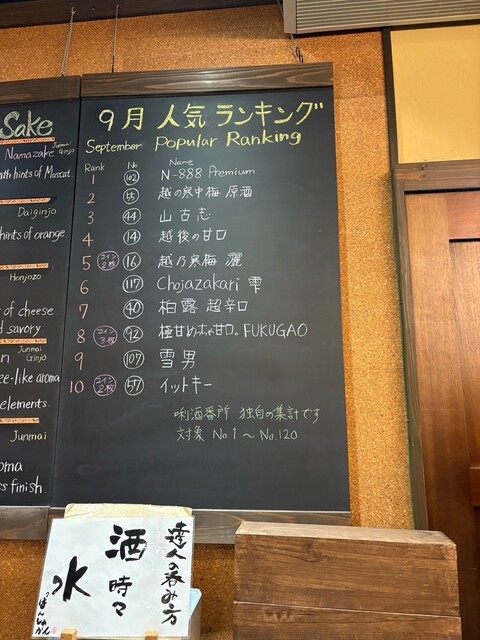 Sake
Junmai
Ginjo
Namazake
with hints of Muscat.
Daiginjo
hints of orange
Honjozo
of cheese
d savory
Junmai
Ginjo
ee-like aroma
elements.
Junmai
oma
ss finish.
9月 人気 ランキング
September Popular Ranking
Rank No Name
1 102 N-888 Premium
2 55 越の寒中梅 原酒
3 44 山古志
4 14 越後の甘口
5 コイン2枚 16 越乃寒梅 灑
6 117 Chojazakari 雫
7 40 柏露 超辛口
8 コイン3枚 92 極甘めっちゃ甘口。FUKUGAO
9 107 雪男
10 コイン2枚 57 イットキー
唎酒番所 独自の集計です
対象 No 1 〜 No.120
達人の呑み方
酒 時々
水
ぽんしゅかん